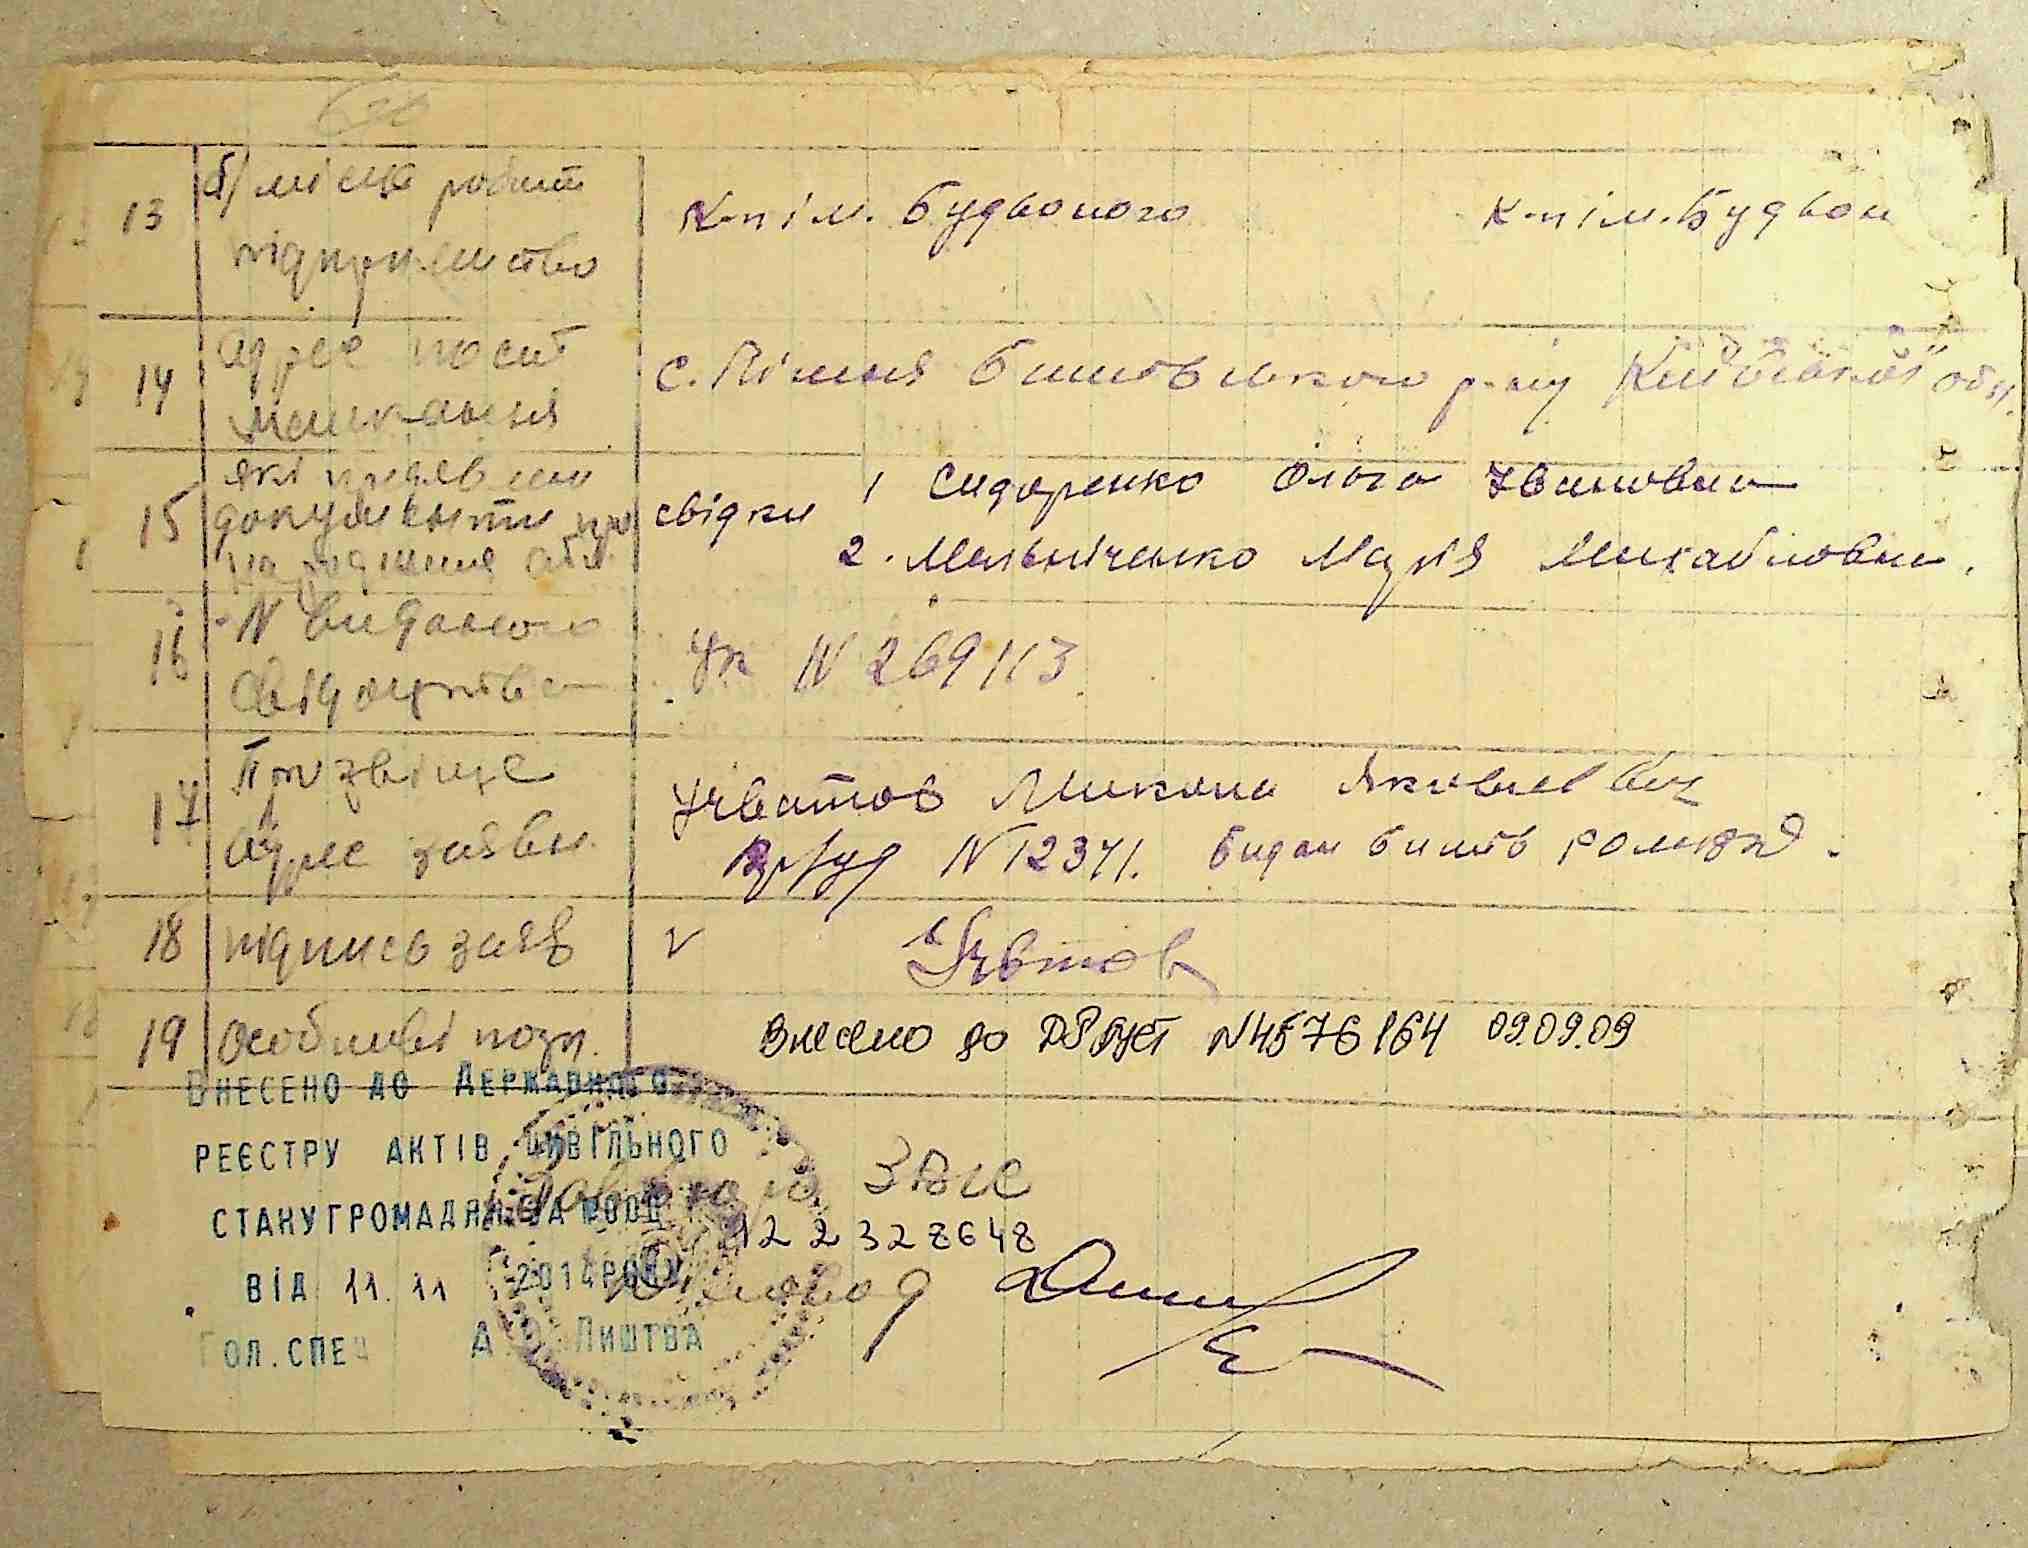 13 б) місце роботи
підприємство
к-п ім. Будьоного к-п ім. Будьон
14 адрес пост
мешкання
с. Лішня Бишівського р-ну Київської обл.
15 які пред'явлен
документи про
народження або
свідки 1 Сидоренко Ольга Івановна
2. Мельніченко Марія Михайловна.
16 N виданого
свідоцтва
Ук N 269113
17 Прізвіще
адрес заявн.
Учватов Микола Яковлевич
N 12371. видан Бишів
18 підпись заяв
V Учватов
19 Особливі позн.
Внесено до N4576164 09.09.09
ВНЕСЕНО ДО ДЕРЖАВНОГО
РЕЄСТРУ АКТІВ ЦИВІЛЬНОГО
СТАНУ ГРОМАДЯН ЗА
ЗАГС
122328648
ВІД 11.11 2014РОКУ
Діловод
ГОЛ.СПЕЦ А. ЛИШТВА